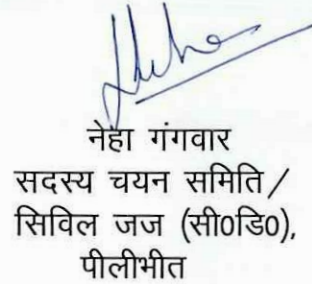 नेहा गंगवार
सदस्य चयन समिति/
सिविल जज (सी0डि0),
पीलीभीत